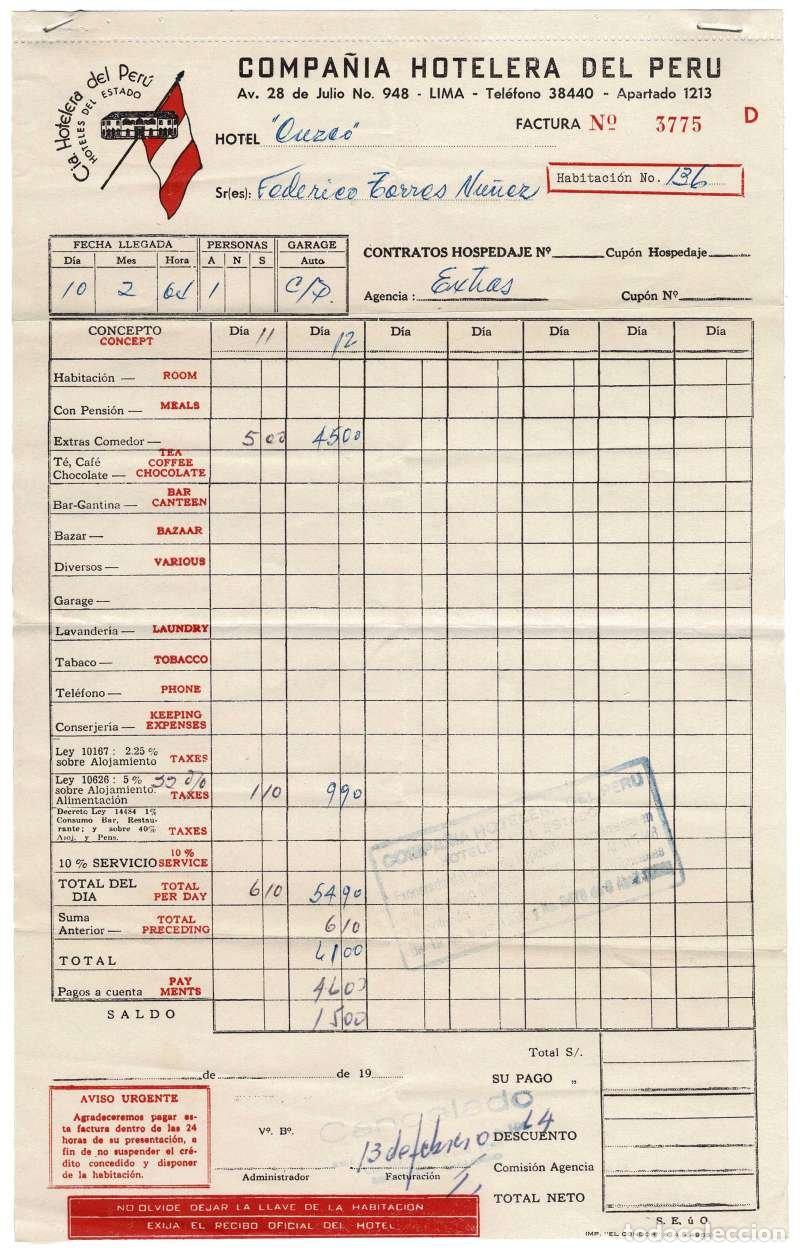 COMPAÑIA HOTELERA DEL PERU
Av. 28 de Julio No. 948 - LIMA - Teléfono 38440 - Apartado 1213
Cía. Hotelera del Perú
HOTELES DEL ESTADO
HOTEL "Cuzco" FACTURA Nº 3775 D
Sr(es): Federico Torres Nuñez Habitación No. 136
FECHA LLEGADA PERSONAS GARAGE
Día Mes Hora A N S Auto.
10 2 1
CONTRATOS HOSPEDAJE Nº Cupón Hospedaje
Agencia : Extras Cupón Nº
CONCEPTO Día 11 Día 12 Día Día Día Día Día
CONCEPT
Habitación — ROOM
Con Pensión — MEALS
Extras Comedor — 500 4500
Té, Café TEA COFFEE
Chocolate — CHOCOLATE
Bar-Cantina — BAR CANTEEN
Bazar — BAZAAR
Diversos — VARIOUS
Garage —
Lavandería — LAUNDRY
Tabaco — TOBACCO
Teléfono — PHONE
Conserjería — KEEPING EXPENSES
Ley 10167 : 2.25 %
sobre Alojamiento TAXES
Ley 10626 : 5 %
sobre Alojamiento.
Alimentación TAXES 110 990
Decreto Ley 14484 1%
Consumo Bar, Restau-
rante; y sobre 40% TAXES
Aloj. y Pens.
10 % SERVICIO 10 % SERVICE
TOTAL DEL DIA TOTAL PER DAY 610 5490
Suma Anterior — TOTAL PRECEDING 610
TOTAL
Pagos a cuenta PAY MENTS
SALDO 1500
COMPAÑIA HOTELERA DEL PERU
Total S/.
de de 19 SU PAGO „
AVISO URGENTE
Agradeceremos pagar es-
ta factura dentro de las 24
horas de su presentación, a
fin de no suspender el cré-
dito concedido y disponer
de la habitación.
Vº. Bº. Cancelado
13 de febrero 64 DESCUENTO
Administrador Facturación Comisión Agencia
TOTAL NETO
NO OLVIDE DEJAR LA LLAVE DE LA HABITACION
EXIJA EL RECIBO OFICIAL DEL HOTEL
S. E. ú O.
IMP. "EL CONDOR"
todocoleccion